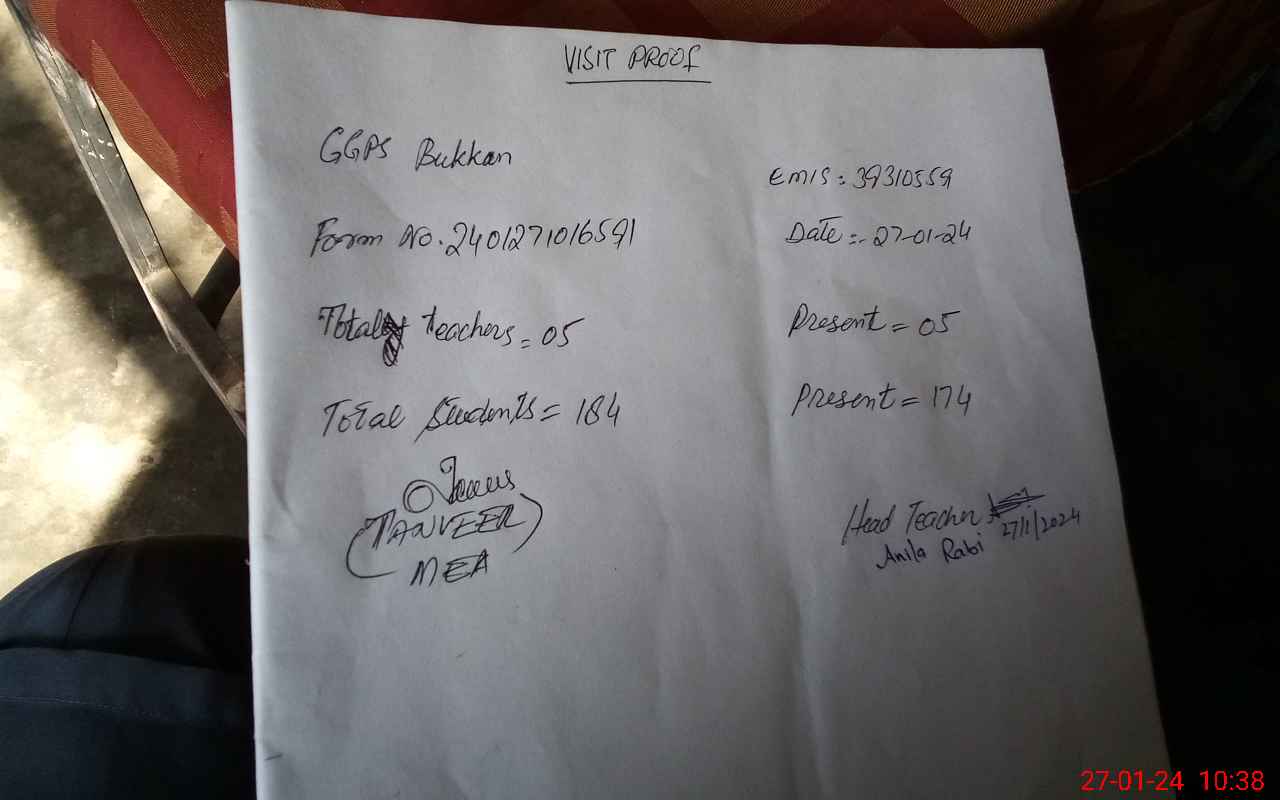 VISIT PROOF
GGPS Bukkan
EMIS: 39310559
Form No. 2401271016591
Date :- 27-01-24
Total teachers = 05
Present = 05
Total Students = 184
Present = 174
(TANVEER)
MEA
Head Teacher
27/1/2024
Anila Rabi
27-01-24 10:38